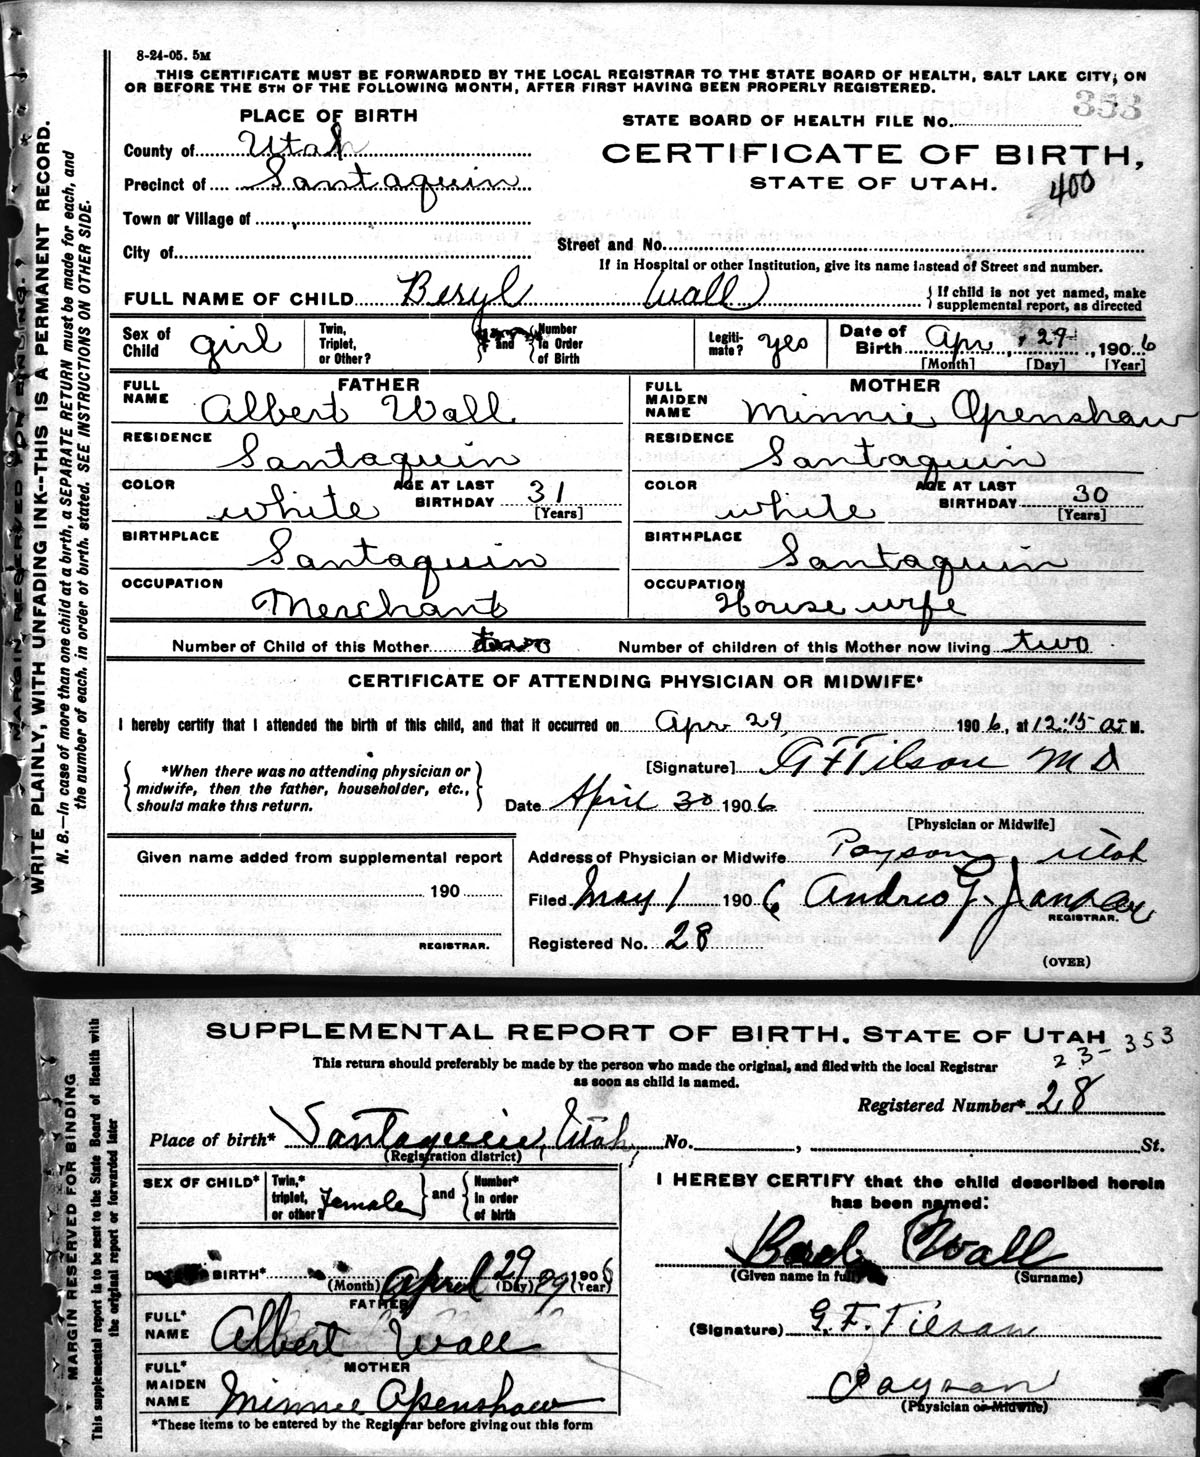 8-24-05. 5M
THIS CERTIFICATE MUST BE FORWARDED BY THE LOCAL REGISTRAR TO THE STATE BOARD OF HEALTH, SALT LAKE CITY, ON
OR BEFORE THE 5TH OF THE FOLLOWING MONTH, AFTER FIRST HAVING BEEN PROPERLY REGISTERED.
353
PLACE OF BIRTH
STATE BOARD OF HEALTH FILE No.
County of Utah
CERTIFICATE OF BIRTH,
Precinct of Santaquin
STATE OF UTAH.
400
Town or Village of
City of
Street and No.
If in Hospital or other Institution, give its name instead of Street and number.
FULL NAME OF CHILD Beryl Wall
{If child is not yet named, make
supplemental report, as directed
Sex of Child girl
Twin, Triplet, or Other?
and {Number in Order of Birth
Legiti-mate? yes
Date of Birth Apr, 29, 1906
[Month] [Day] [Year]
FATHER
MOTHER
FULL NAME Albert Wall
FULL MAIDEN NAME Minnie Openshaw
RESIDENCE Santaquin
RESIDENCE Santaquin
COLOR white AGE AT LAST BIRTHDAY 31 [Years]
COLOR white AGE AT LAST BIRTHDAY 30 [Years]
BIRTHPLACE Santaquin
BIRTHPLACE Santaquin
OCCUPATION Merchant
OCCUPATION House wife
Number of Child of this Mother two
Number of children of this Mother now living two
CERTIFICATE OF ATTENDING PHYSICIAN OR MIDWIFE*
I hereby certify that I attended the birth of this child, and that it occurred on Apr 29, 1906, at 12:15 a M.
{*When there was no attending physician or
midwife, then the father, householder, etc.,
should make this return.}
[Signature] G F Tilson M D
Date April 30 1906
[Physician or Midwife]
Given name added from supplemental report
190
REGISTRAR.
Address of Physician or Midwife Payson Utah
Filed May 1 1906 Andrew G.
REGISTRAR.
Registered No. 28
(OVER)
MARGIN RESERVED FOR BINDING.
WRITE PLAINLY, WITH UNFADING INK--THIS IS A PERMANENT RECORD.
N. B.—In case of more than one child at a birth, a SEPARATE RETURN must be made for each, and
the number of each, in order of birth, stated. SEE INSTRUCTIONS ON OTHER SIDE.
SUPPLEMENTAL REPORT OF BIRTH. STATE OF UTAH
23-353
This return should preferably be made by the person who made the original, and filed with the local Registrar
as soon as child is named.
Registered Number* 28
Place of birth* Santaquin, Utah, No. , St.
(Registration district)
SEX OF CHILD* Female
Twin,* triplet, or other?
} and {
Number* in order of birth
I HEREBY CERTIFY that the child described herein
has been named:
Wall
(Given name in full) (Surname)
BIRTH* April 29 1906
(Month) (Day) (Year)
FATHER
FULL* NAME Albert Wall
(Signature) G. F. Tilson
MOTHER
FULL* MAIDEN NAME Minnie Openshaw
Payson
(Physician or Midwife)
*These items to be entered by the Registrar before giving out this form
MARGIN RESERVED FOR BINDING
This supplemental report to be sent to the State Board of Health with
the original report or forwarded later